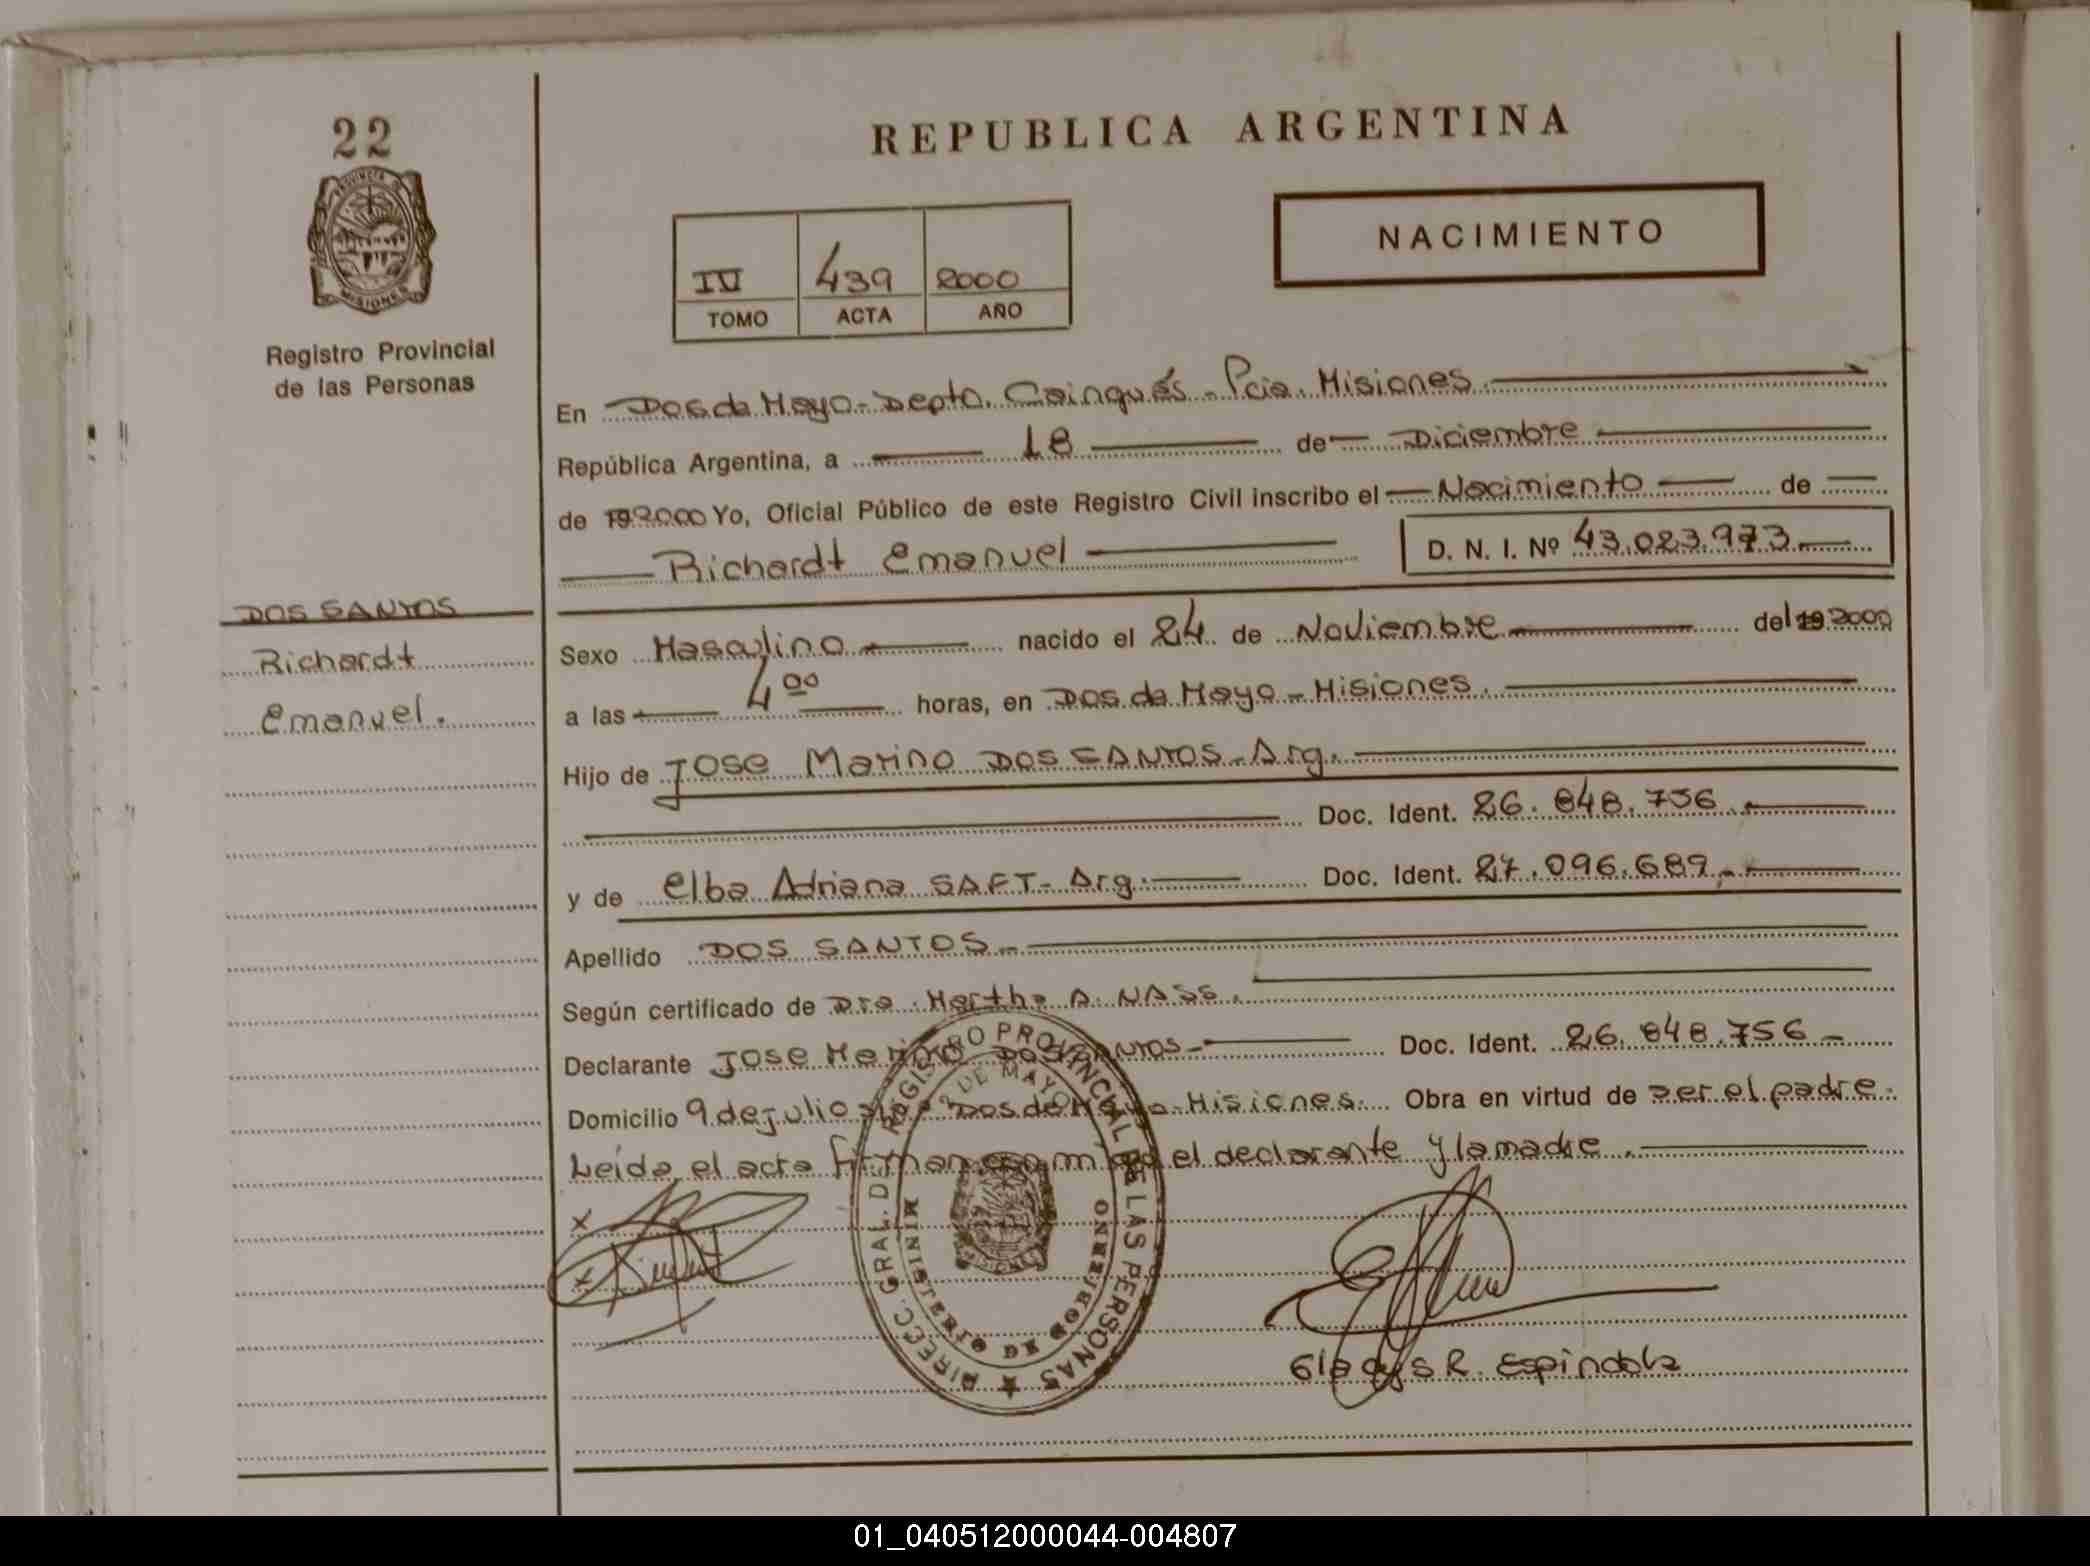 22
PROVINCIA DE
MISIONES
Registro Provincial
de las Personas
DOS SANTOS
Richardt
Emanuel.
REPUBLICA ARGENTINA
NACIMIENTO
IV 439 2000
TOMO ACTA AÑO
En Dos de Mayo - Depto. Cainguás - Pcia. Misiones.
República Argentina, a 18 de Diciembre
de 19 2000 Yo, Oficial Público de este Registro Civil inscribo el Nacimiento de
Richardt Emanuel D. N. I. Nº 43.023.973.
Sexo Masculino nacido el 24 de Noviembre del 19 2000
a las 4 00 horas, en Dos de Mayo - Misiones.
Hijo de Jose Marino DOS SANTOS - Arg.
Doc. Ident. 26.848.756.
y de Elba Adriana SAFT - Arg. Doc. Ident. 27.096.689.-
Apellido DOS SANTOS.-
Según certificado de Dra. Martha A. NASS.
Declarante Jose Marino DOS SANTOS - Doc. Ident. 26.848.756 -
Domicilio 9 de julio Dos de Mayo - Misiones. Obra en virtud de ser el padre.
Leída el acta firman conmigo el declarante y la madre.
x
x
DIRECC. GRAL. DE REGISTRO PROVINCIAL DE LAS PERSONAS
2 DE MAYO
MINISTERIO DE GOBIERNO
MISIONES
Gladys R. Espindola
01_040512000044-004807